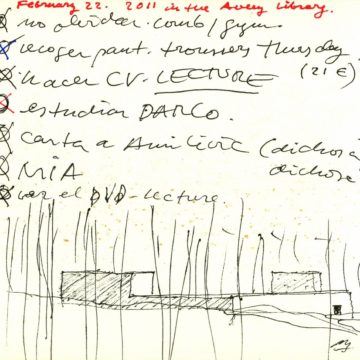 February 22. 2011 in the Avery Library.
no olvidar comb/gym
recoger pant. trousers Thursday
hacer CV-LECTURE (21 €)
estudiar DARCO.
carta a (dichosa
MIA dichosa
ver el DVD-lecture.